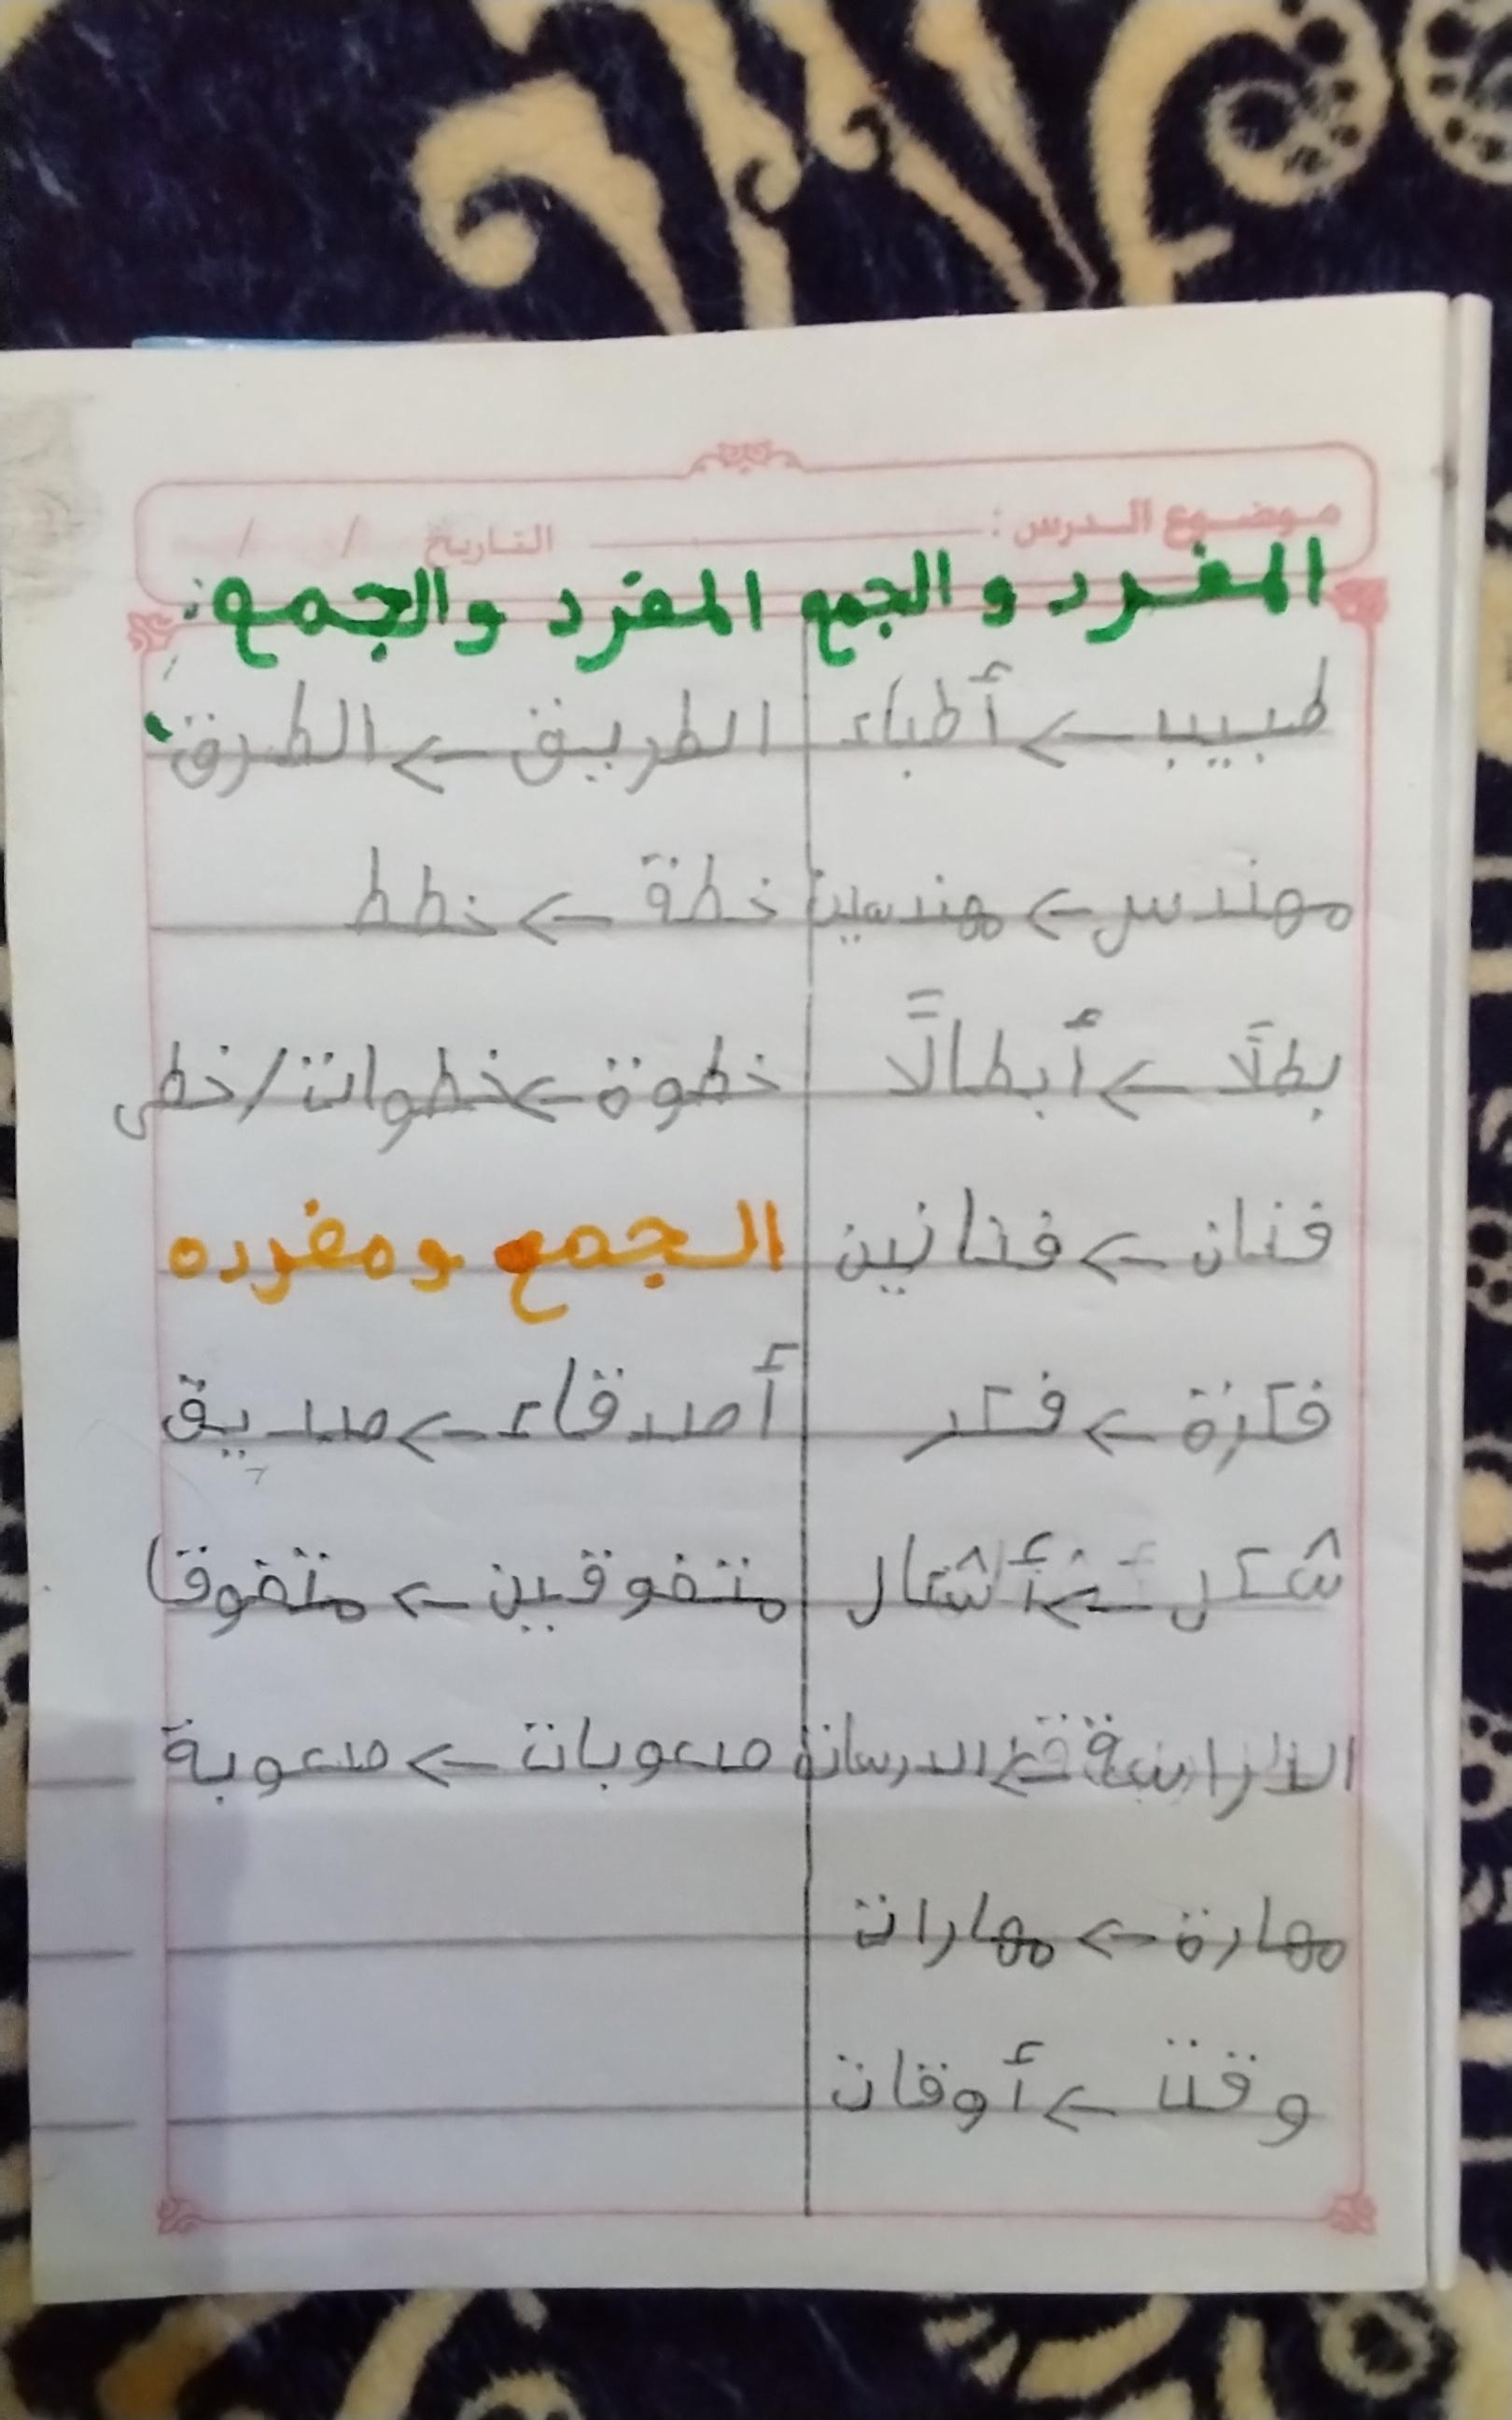 موضوع الدرس : التاريخ / /
المفرد والجمع
طبيب ← أطباء
مهندس ← مهندسين
بطلًا ← أبطالًا
فنان ← فنانين
فكرة ← فكر
شكل ← أشكال
مهارة ← مهارات
وقت ← أوقات
المفرد والجمع:
الطريق ← الطرق
خطة ← خطط
خطوة ← خطوات/خطى
الجمع ومفرده
أصدقاء ← صديق
متفوقين ← متفوقا
صعوبات ← صعوبة